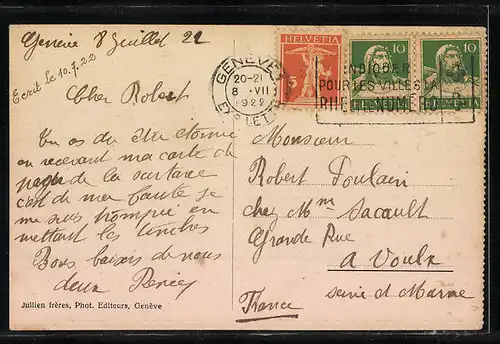 Genève 8 Juillet 22
Ecrit le 10.7.22
Cher Robert
Tu as du être étonné
en recevant ma carte de
payer de la surtaxe
c'est de ma faute je
me suis trompée en
mettant les timbres
Bons baisers de nous
deux
Jullien frères, Phot. Editeurs, Genève
GENÈVE
20-21
8 VII
1922
EXP. LET.
HELVETIA
5
10
10
INDIQUER
POUR LES VILLES LA
RUE & LE NUMERO
HELVETIA
Monsieur
Robert Poulain
chez Mme Sacault
Grande Rue
a Voulx
Seine et Marne
France